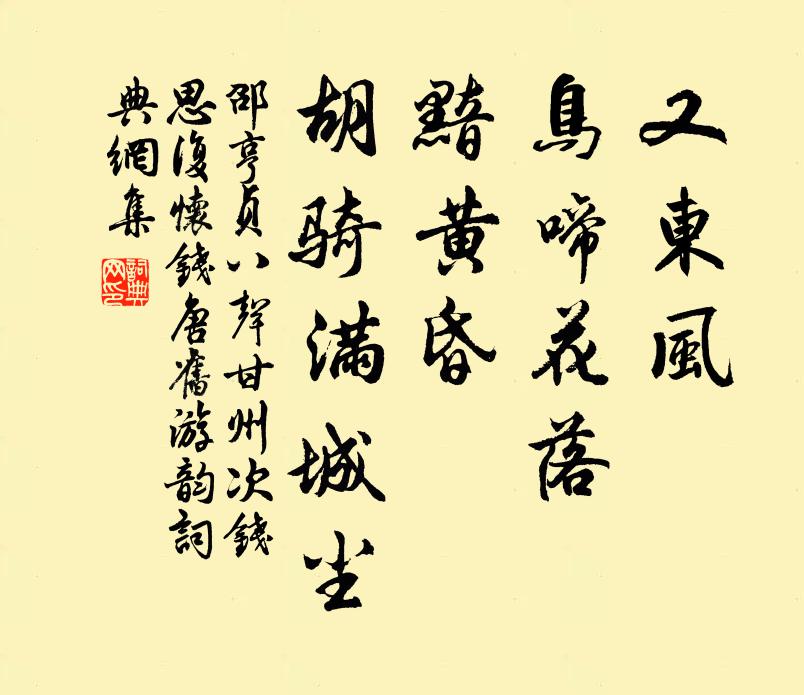 又東風
鳥啼花落
黯黃昏
胡騎满城尘
邵亨貞八聲甘州次錢
思復懷錢唐舊游韵詞
典網集
詞典网印